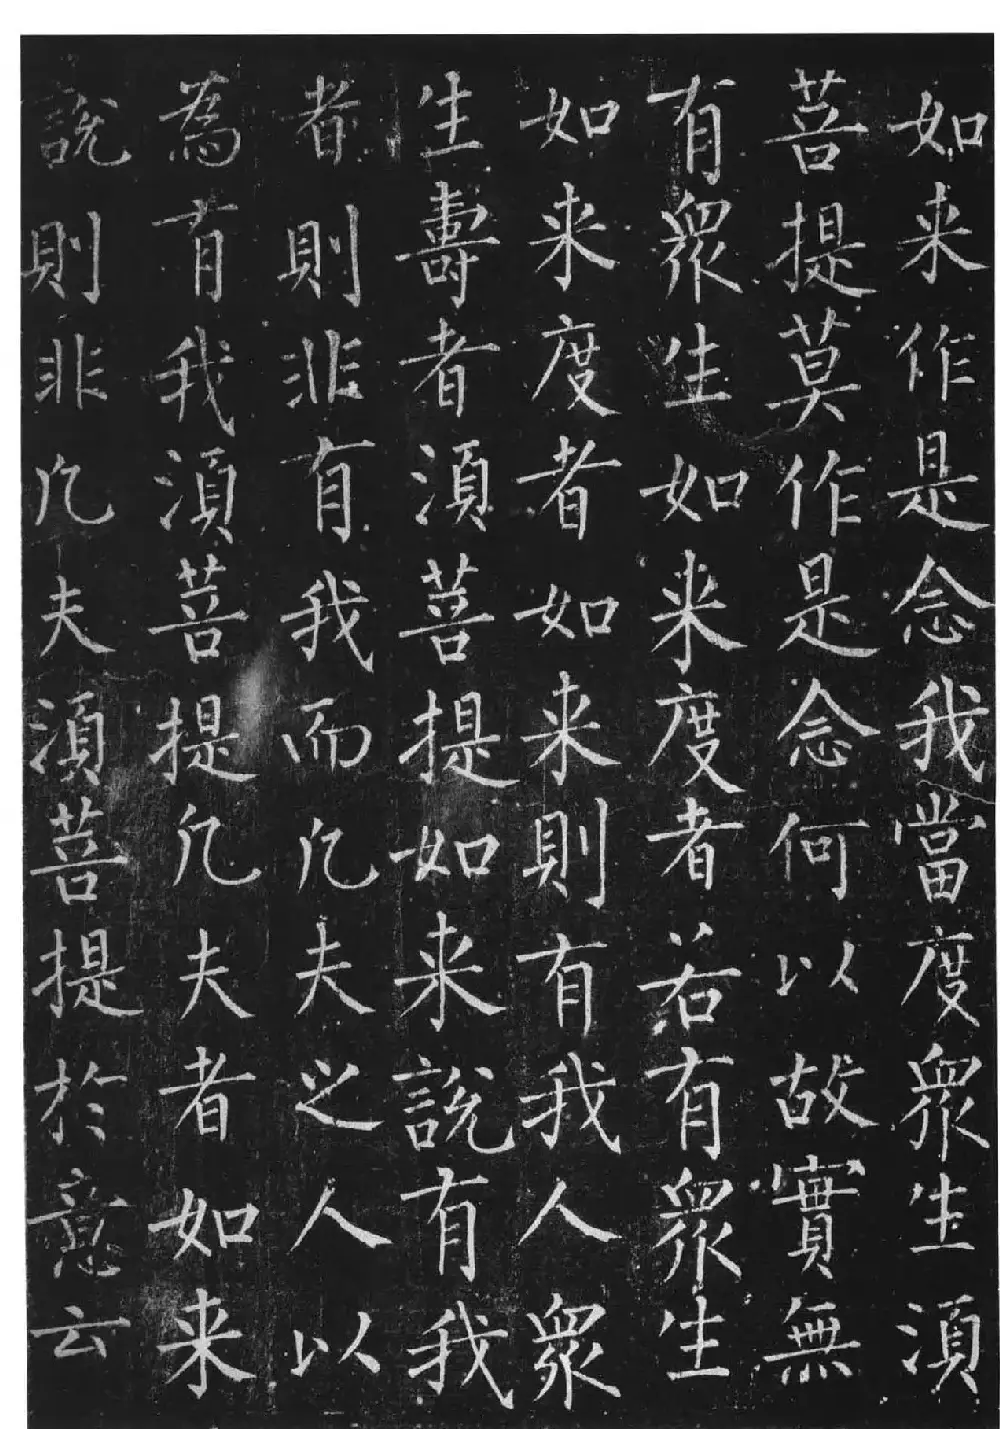 如来作是念我當度衆生湏
菩提莫作是念何以故實無
有衆生如来度者若有衆生
如来度者如来則有我人衆
生壽者湏菩提如来説有我
者則非有我而凡夫之人以
為有我湏菩提凡夫者如来
説則非凡夫湏菩提於意云